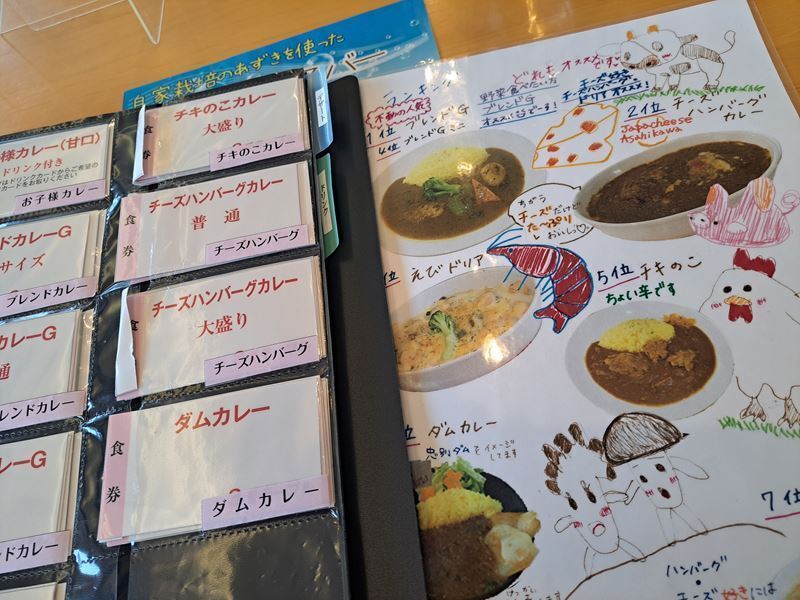 自家栽培のあずきを使った
バー
様カレー(甘口)
ドリンク付き
お子様カレー
食券
チキのこカレー
大盛り
チキのこカレー
デザート
ドリンク
ドカレーG
サイズ
ブレンドカレー
食券
チーズハンバーグカレー
普通
チーズハンバーグ
カレーG
通
レンドカレー
チーズハンバーグカレー
大盛り
チーズハンバーグ
レーG
ンドカレー
食券
ダムカレー
ダムカレー
ランキング
どれもオススメです
不動の人気
1位 ブレンドG
4位 ブレンドGミニ
野菜食べたい方
ブレンドG
オススメです!
2位 チーズ
ハンバーグ
カレー
Japacheese
Asahikawa
ちがう
チーズだけど
た〜っぷり
おいしい♡
位 えびドリア
5位 チキのこ
ちょい辛です
位 ダムカレー
忠別ダムをイメージ
してます
7位
ハンバーグ
・
チーズ好きには